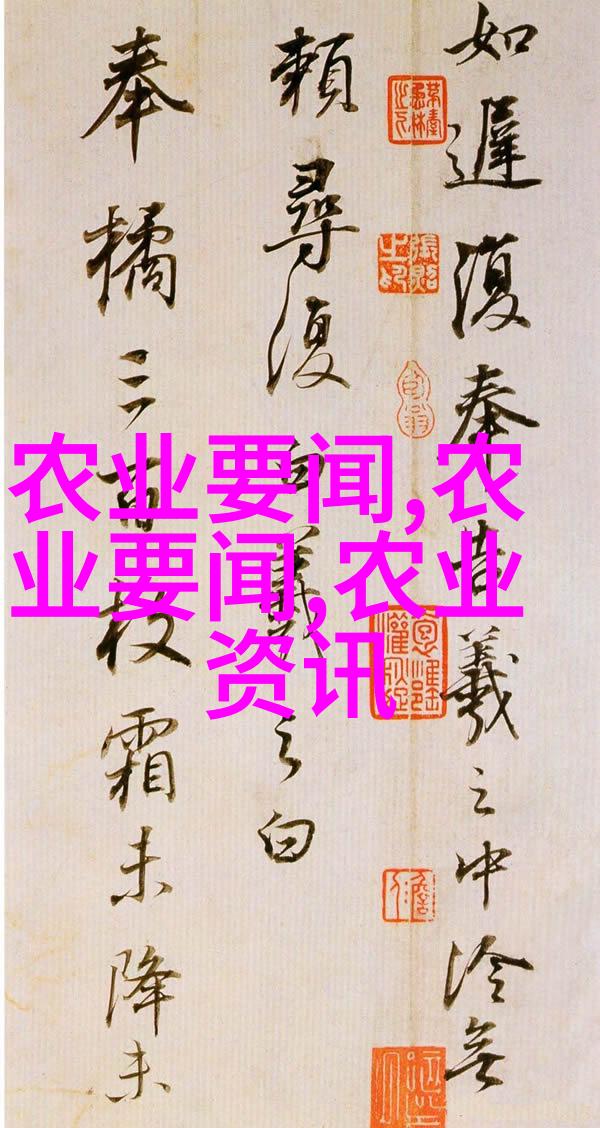 如遲復奉告羲之中冷無
賴尋復白羲之白
奉橘三百枚霜未降未
农业要闻,农
业要闻,农业
资讯